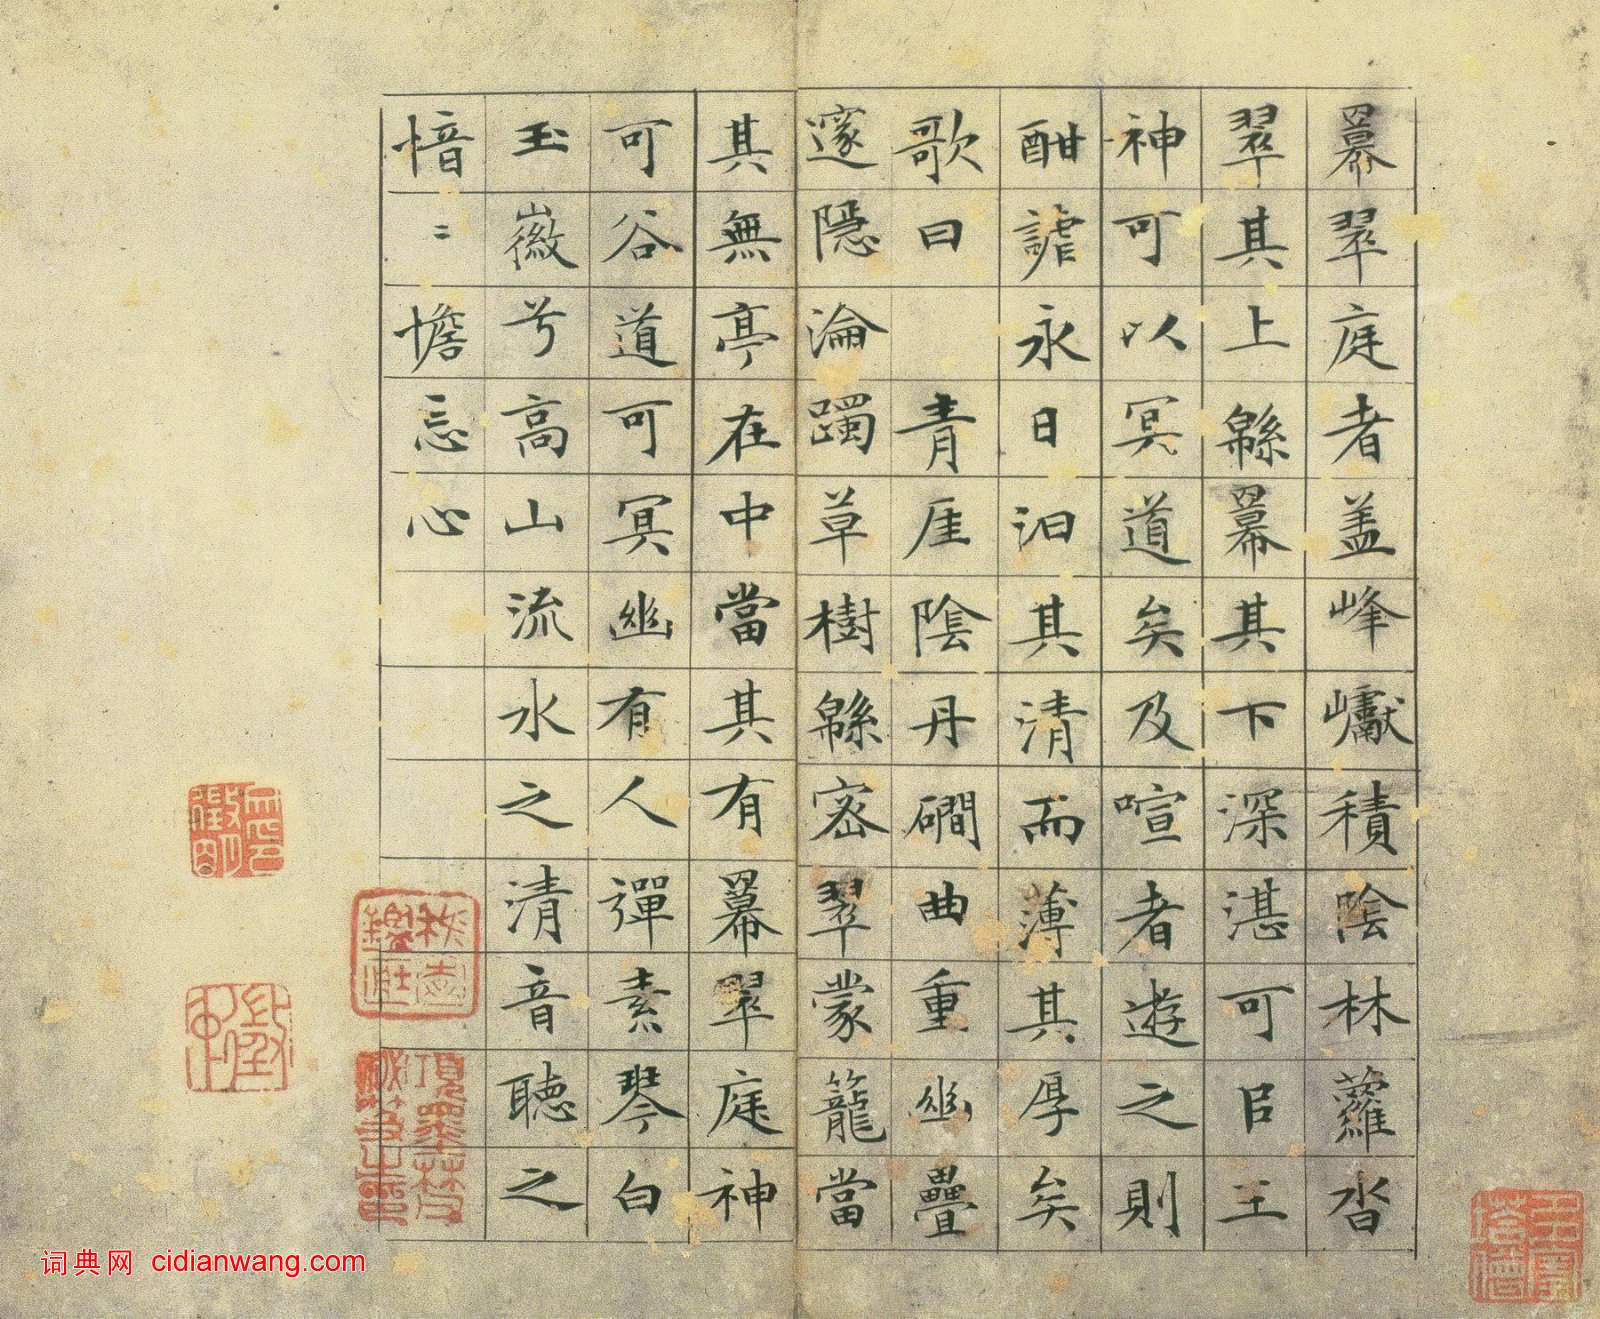 冪翠庭者盖峰巘積陰林蘿沓
翠其上緜冪其下深湛可㠯王
神可以冥道矣及喧者遊之則
酣謔永日汩其清而薄其厚矣
歌曰　青厓陰丹磵曲重幽疊
邃隱淪躅草樹緜密翠蒙籠當
其無亭在中當其有冪翠庭神
可谷道可冥幽有人彈素琴白
玉徽兮高山流水之清音聽之
愔〻憺忘心
項墨林父祕笈之印
词典网 cidianwang.com